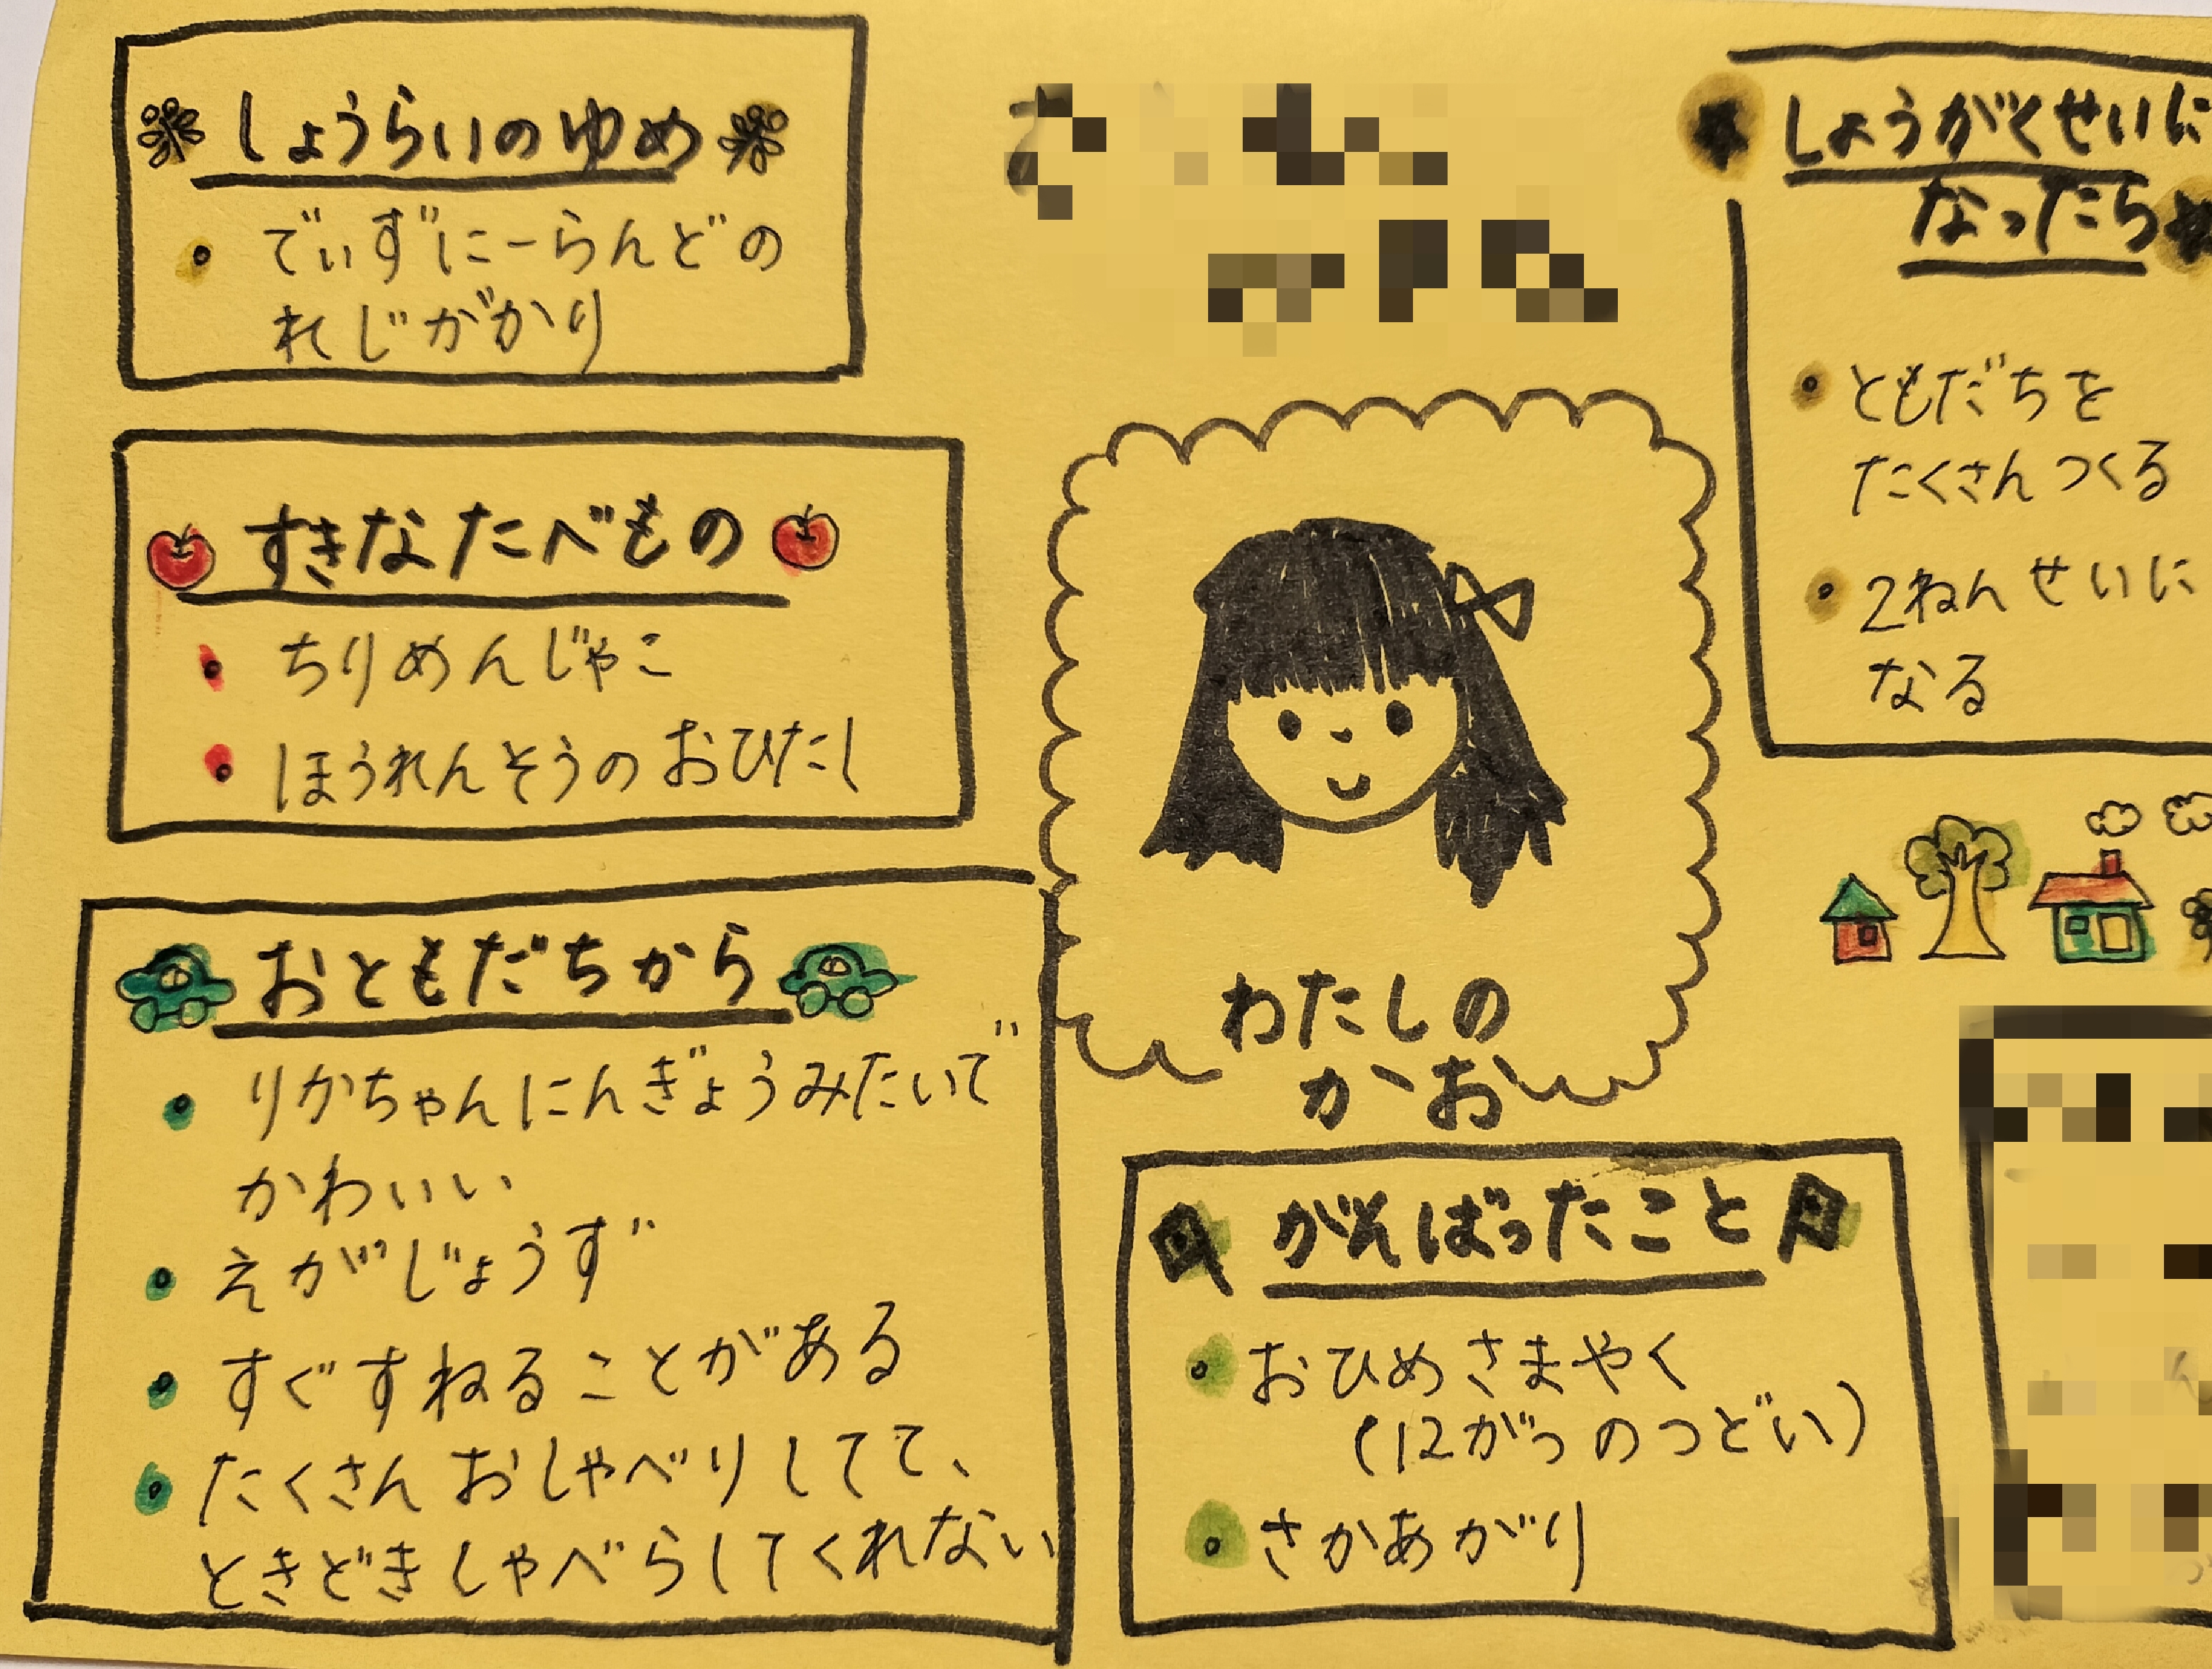 しょうらいのゆめ
でぃずにーらんどの
れじがかり
すきなたべもの
ちりめんじゃこ
ほうれんそうのおひたし
おともだちから
りかちゃんにんぎょうみたいで
かわいい
えがじょうず
すぐすねることがある
たくさんおしゃべりしてて、
ときどきしゃべらしてくれない
わたしの
かお
がんばったこと
おひめさまやく
(12がつのつどい)
さかあがり
しょうがくせいに
なったら
ともだちを
たくさんつくる
2ねんせいに
なる